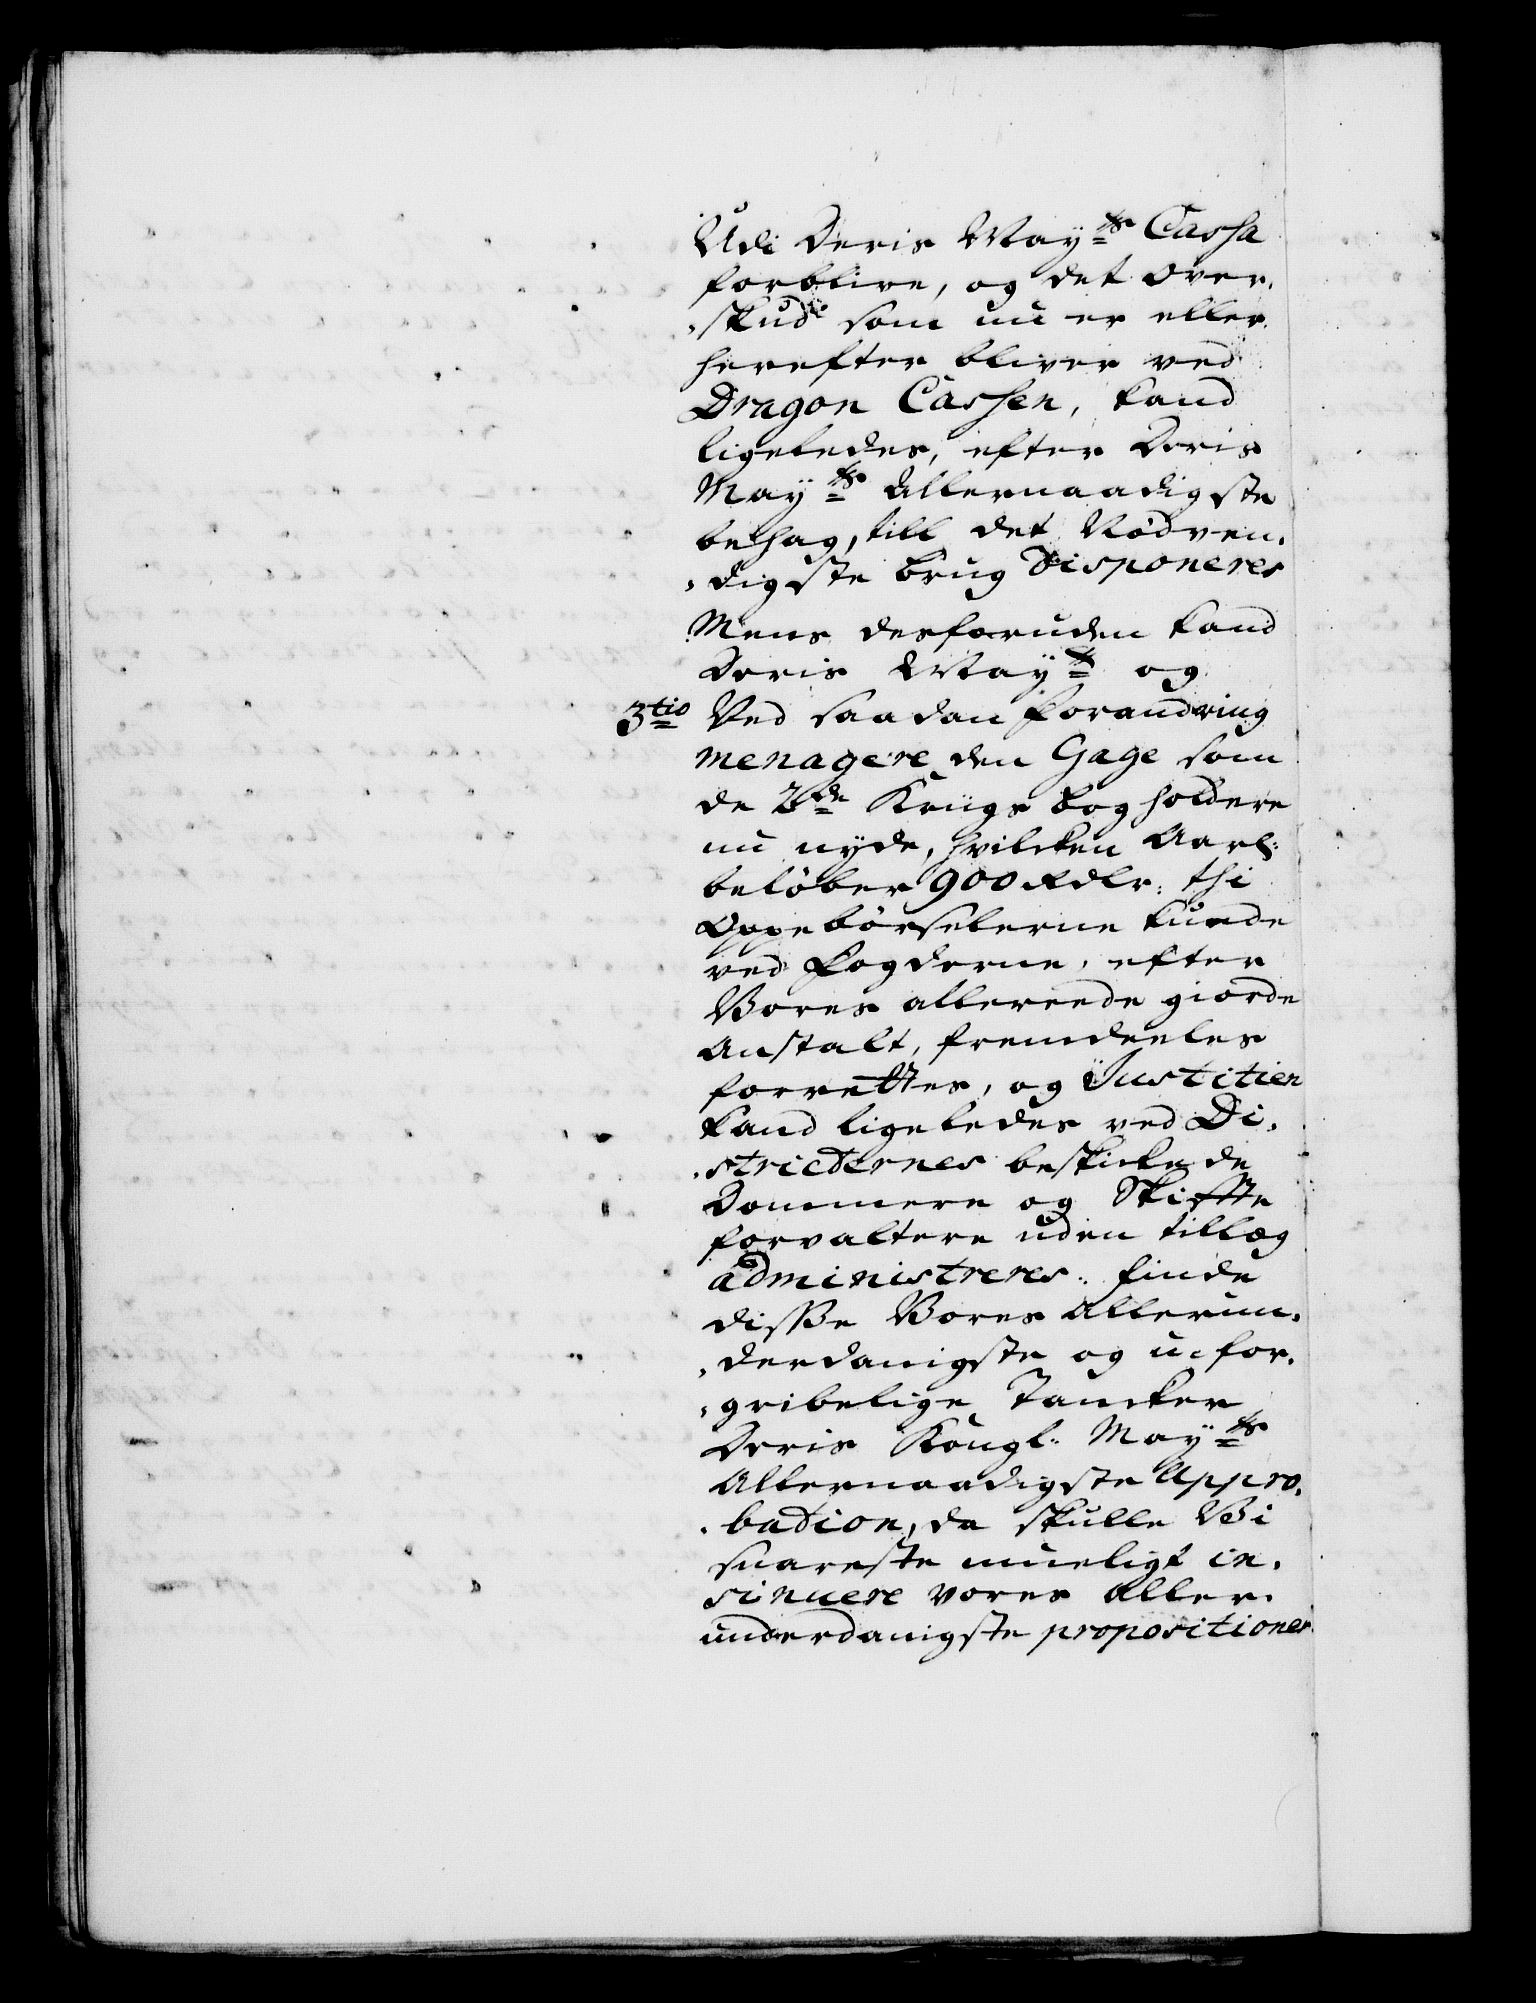 Udi Deris Mayts Cassa
forblive, og det Over-
-skud som nu er eller
herefter bliver ved
Dragon Cassen, kand
ligeledes, efter Deris
Mayts Allernaadigste
behag, till det Nødven-
-digste brug Disponeres
Mens desforuden kand
Deris Mayt og
3tio Ved saadan forandring
menagere den Gage som
de 2de Krigs bogholdere
nu nyde, hvilcken Aarl:
beløber 900 Rdlr: thi
Oppebørselerne kunde
ved fogderne, efter
Vores allereede giorde
Anstalt, fremdeeles
forrettes, og Justitien
kand ligeledes ved Di-
-stricternes beskickede
Dommere og Skiffte
forvaltere uden tillæg
administreres. finde
disse Vores Allerun-
-derdanigste og u-for-
-gribelige Tancker
Deris Kongl: Mayts
Allernaadigste Appro-
-bation, da skulle Vi
snareste mueligt in-
sinuere vores Aller-
underdanigste propositioner